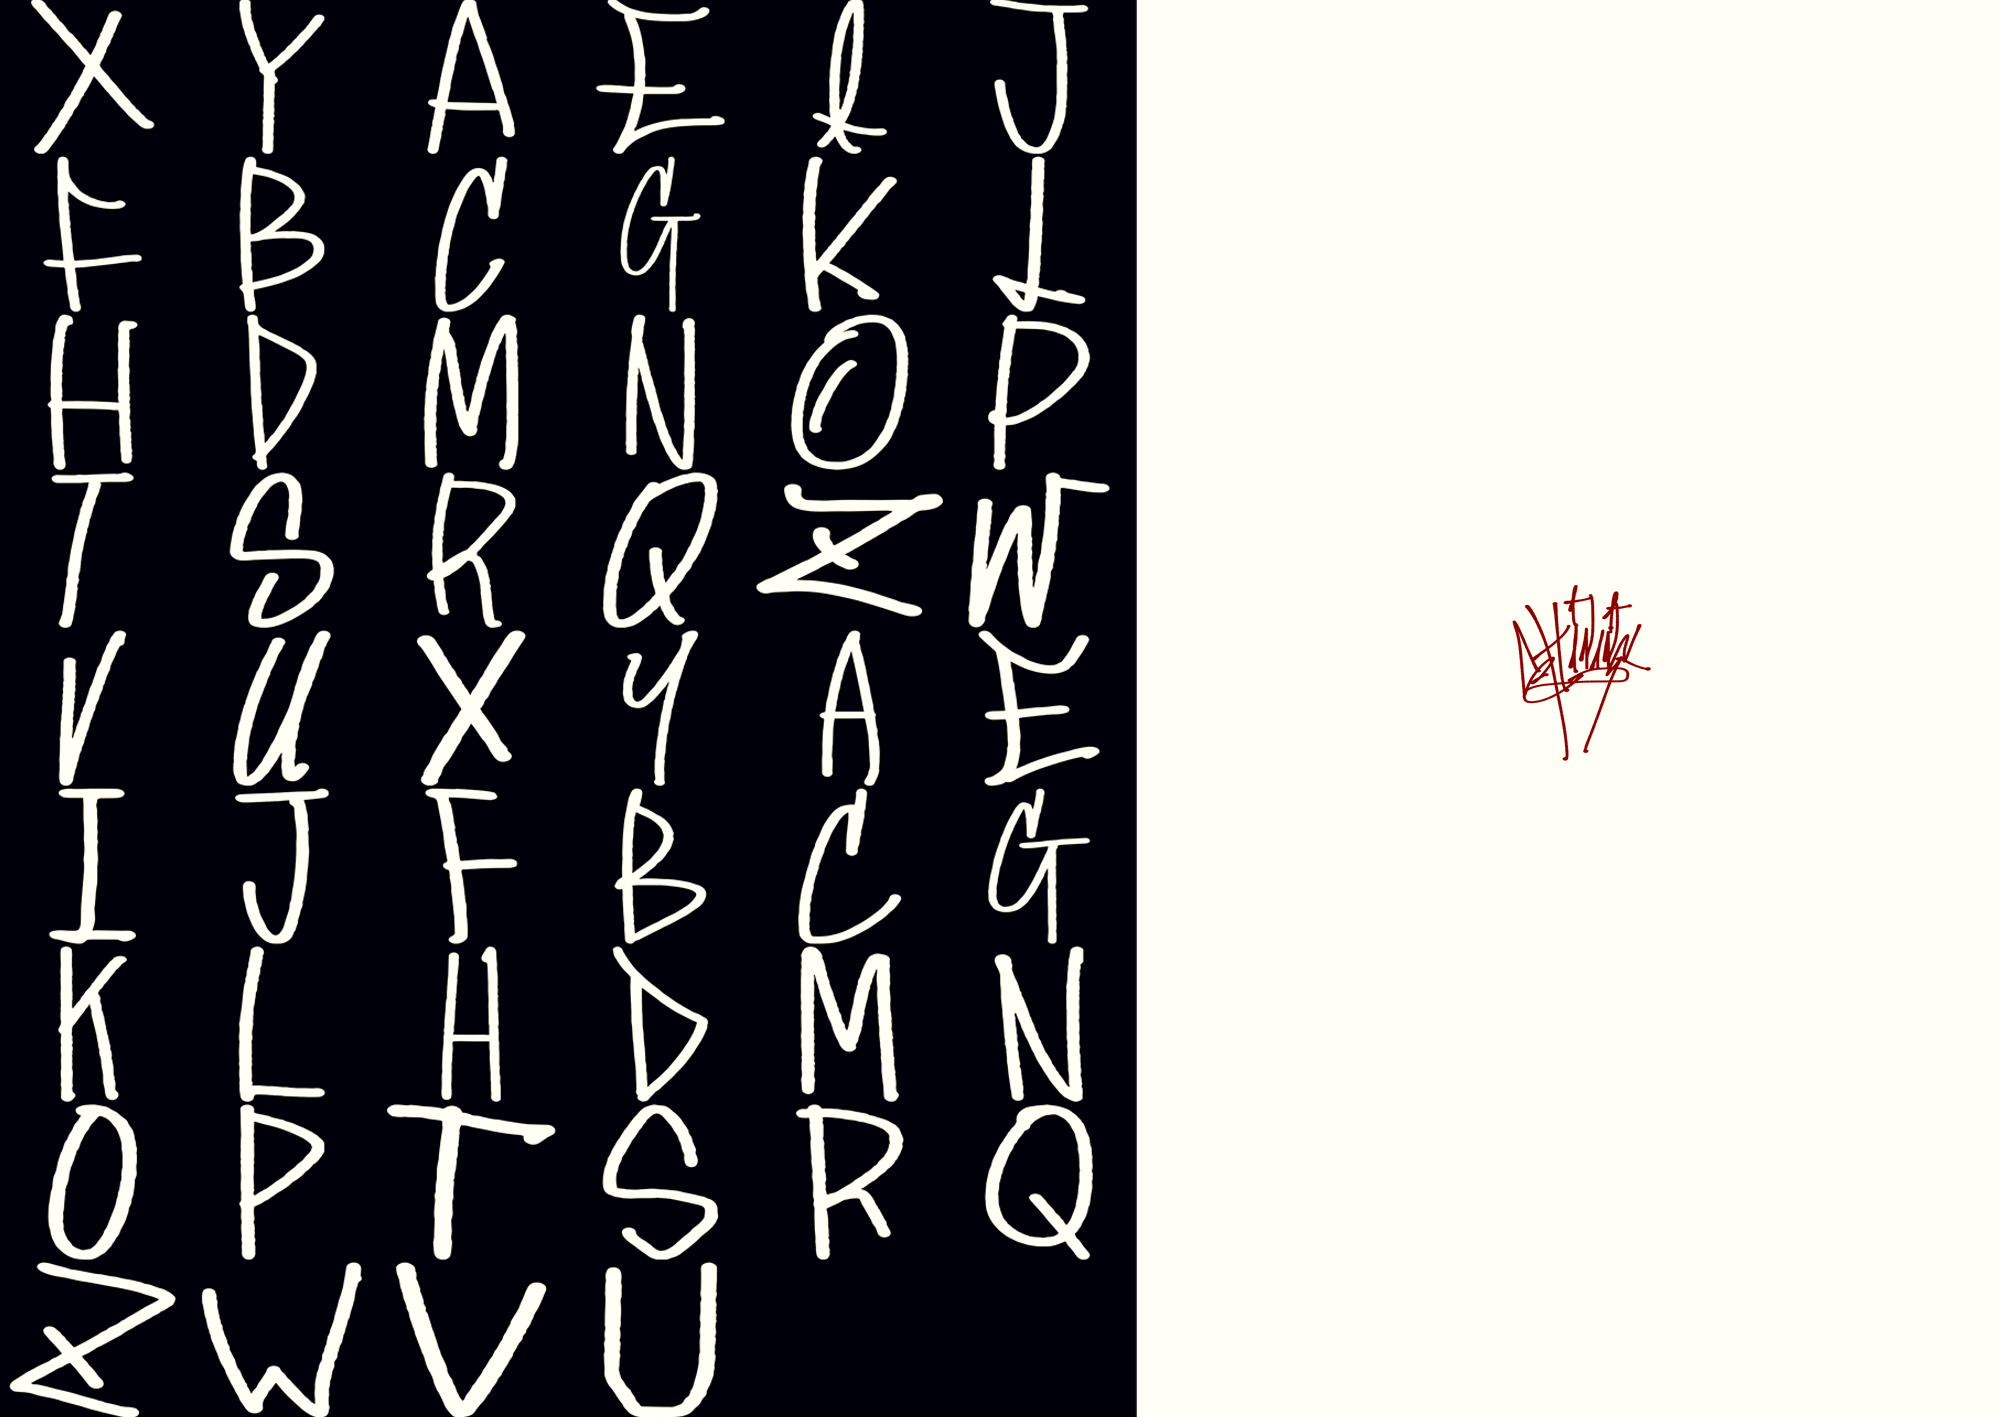 X Y A E l J
F B C G K L
H D M N O P
T S R Q Z W
V U X Y A E
I J F B C G
K L H D M N
O P T S R Q
Z W V U